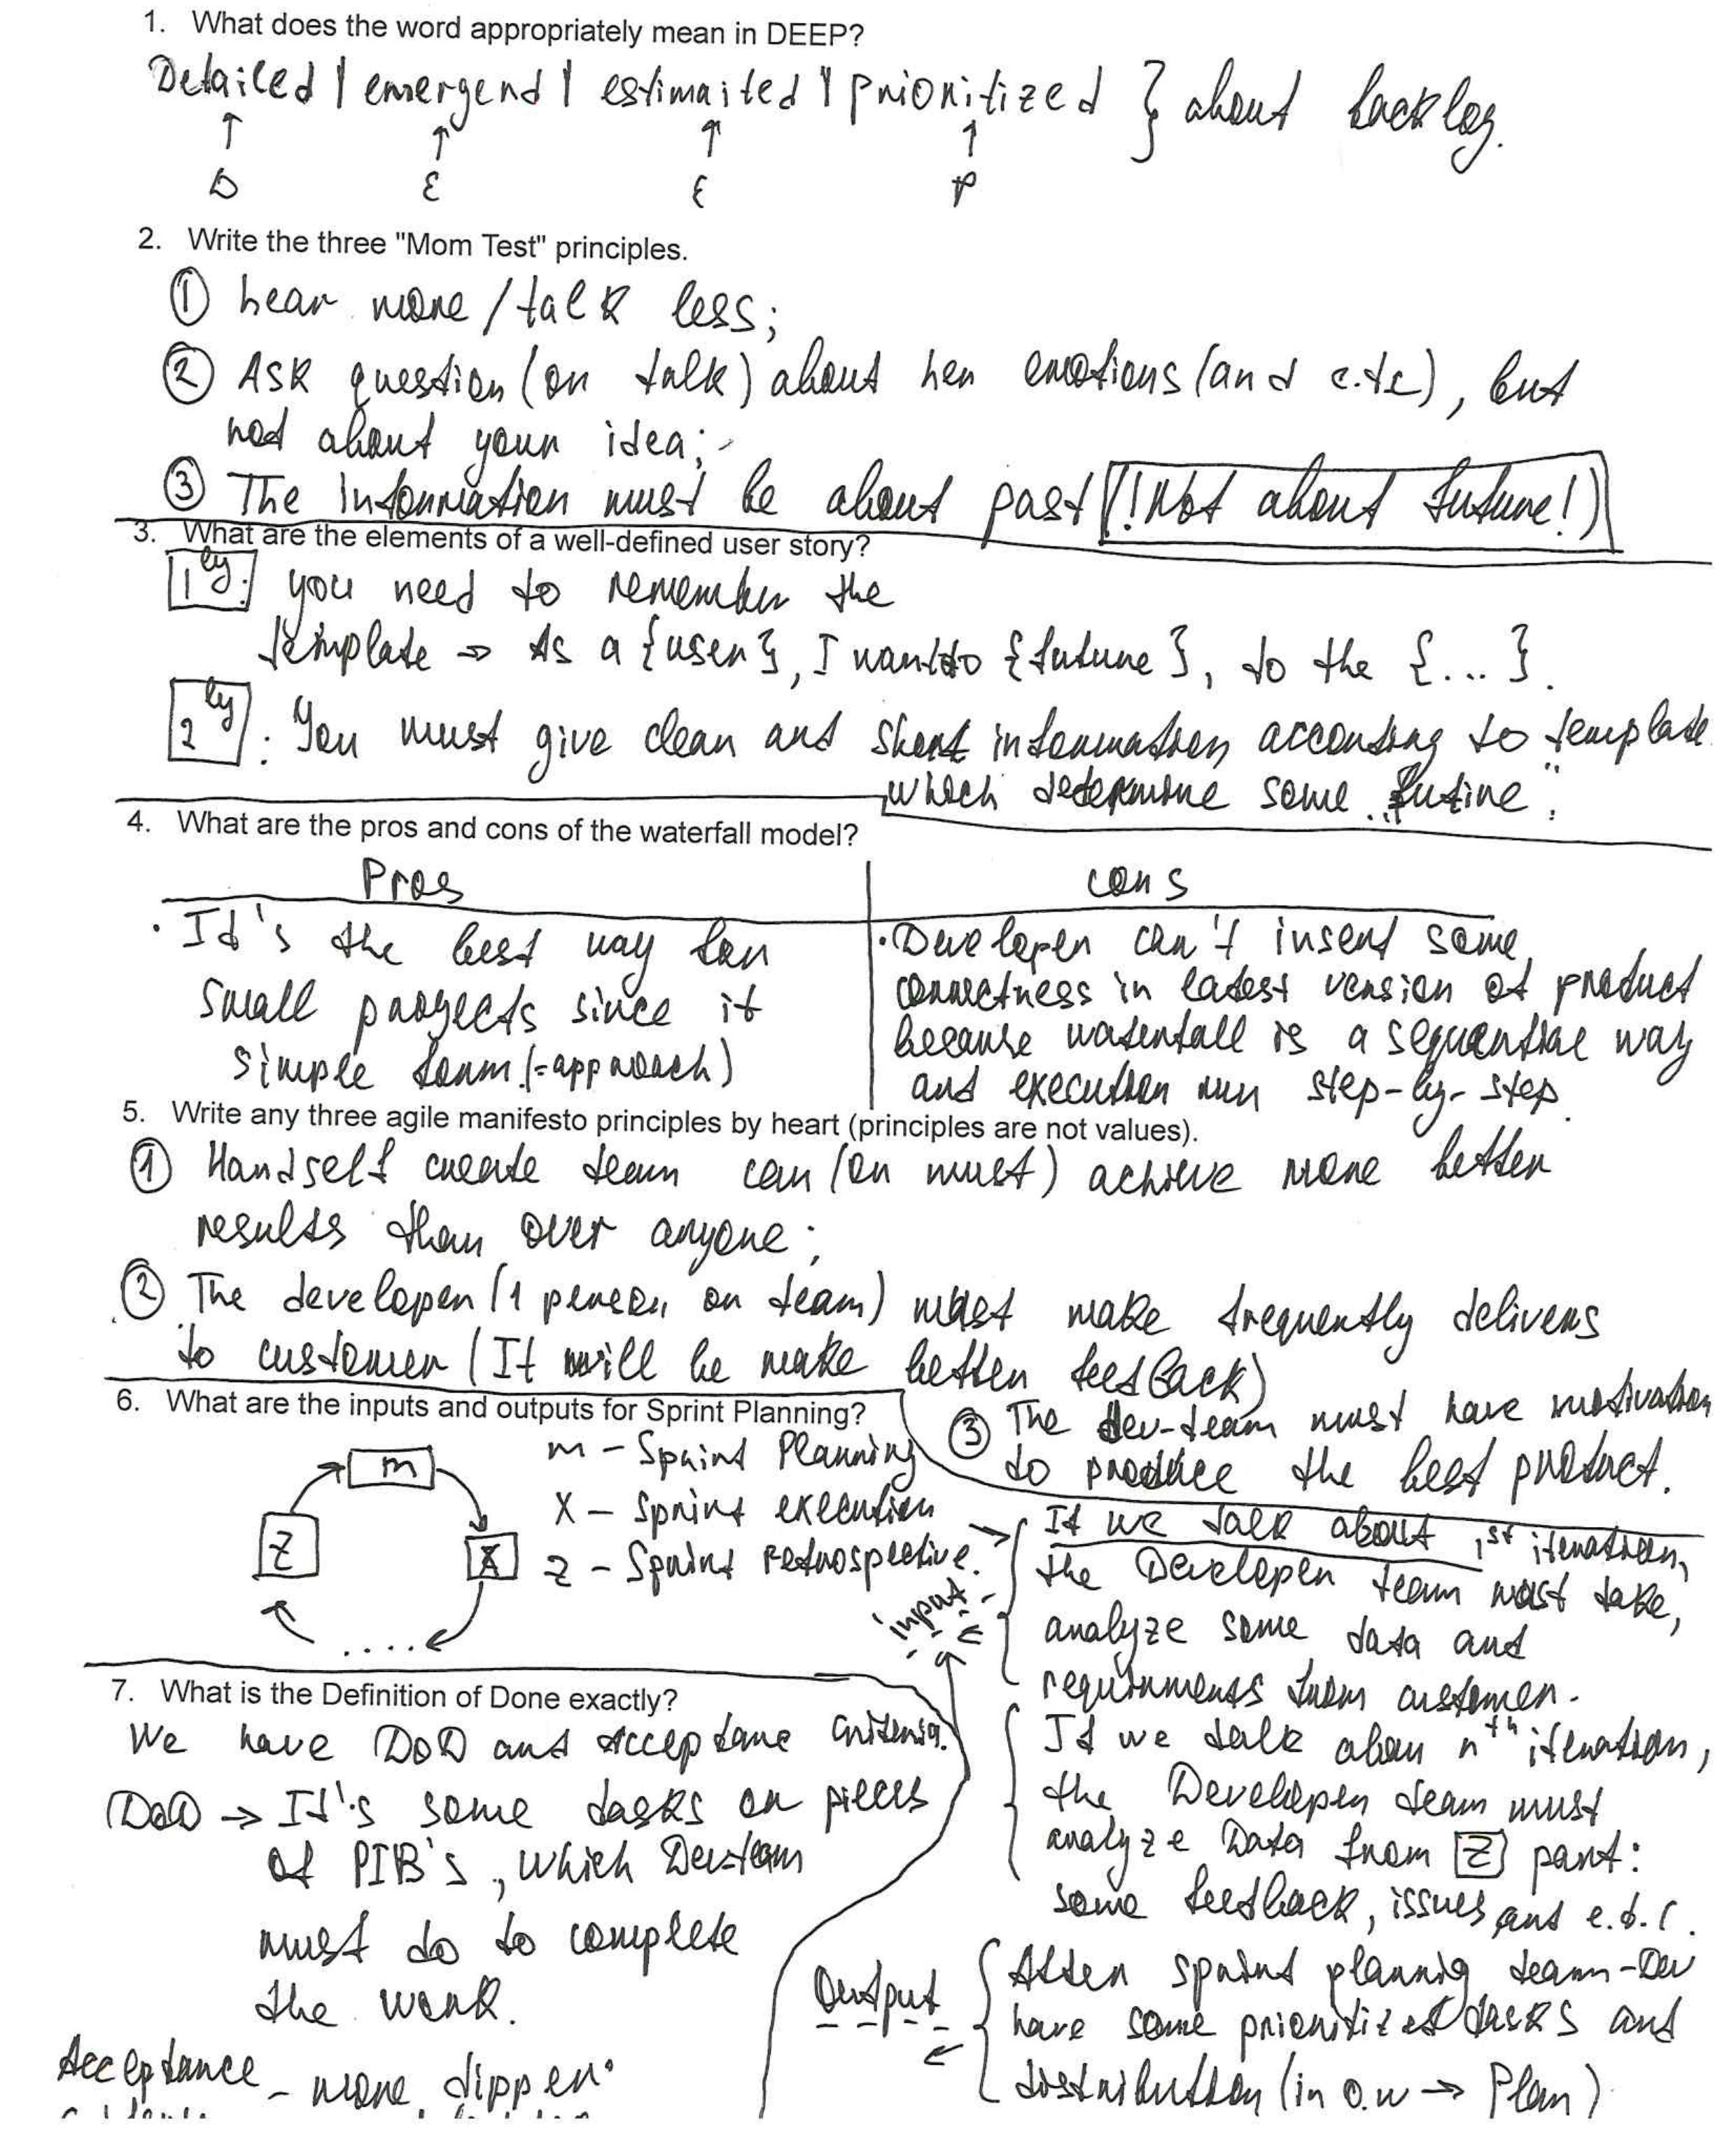 1. What does the word appropriately mean in DEEP?
Detailed | emergend | estimaited | prioritized } about backlog.
↑ ↑ ↑ ↑
D E E P
2. Write the three "Mom Test" principles.
① hear more / talk less;
② ASK question (or talk) about her emotions (and e.t.c), but
not about your idea;
③ The information must be about past (! Not about future!)
3. What are the elements of a well-defined user story?
1ly: you need to remember the
template => As a {user}, I want to {future}, to the {...}.
2ly: You must give clear and short information according to template
which determine some "futire".
4. What are the pros and cons of the waterfall model?
Pros
· It's the best way for
small progects since it
simple form (=approach)
cons
· Developer can't insert some
correctness in latest version of product
because waterfall is a sequential way
and execution run step-by-step.
5. Write any three agile manifesto principles by heart (principles are not values).
① Handself create team can (or must) achieve more better
results than over anyone;
② The developer (1 person or team) must make frequently delivers
to customer (It will be make better feedback)
③ The dev-team must have motivation
to produce the best product.
6. What are the inputs and outputs for Sprint Planning?
m
Z
X
....
m - Sprint Planning
X - Sprint execution
Z - Sprint retrospective.
input
If we talk about 1st iteration,
the Developer team must take,
analyze some data and
requirnments from customer.
If we talk abou nth iteration,
the Developer team must
analyze Data from Z part:
some feedback, issues and e.t.c.
Output
After sprint plannig team-Dev
have some prioritized tasks and
distribution (in o.w → Plan)
7. What is the Definition of Done exactly?
We have DoD and Acceptane criteria.
DoD → It's some tasks or pieces
of PIB's, which Dev-team
must do to complete
the work.
Acceptance - more dipper